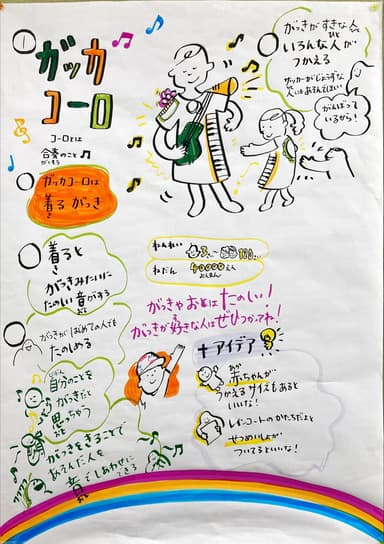 ガッカ
コーロ
コーロとは
合奏のこと
がっそう
ガッカコーロは
着る がっき
着ると
がっきみたいに
たのしい音がする
がっきがはじめての人でも
たのしめる
自分のことを
じぶん
がっきだと
思っちゃう
がっきをきることで
あそんだ人を
音でしあわせにできる
がっきがすきな人
いろんな人が
つかえる
サッカーがじょうずな
人にもあそんでほしい
がんばって
いるから!
ねんれい
ねだん
40000えん
がっきやおとはたのしい!
がっきが好きな人はぜひつかってね!
+アイデア
赤ちゃんが
つかえるサイズもあると
いいな!
レインコートのかたちだよと
せつめいしょが
ついてるといいな!